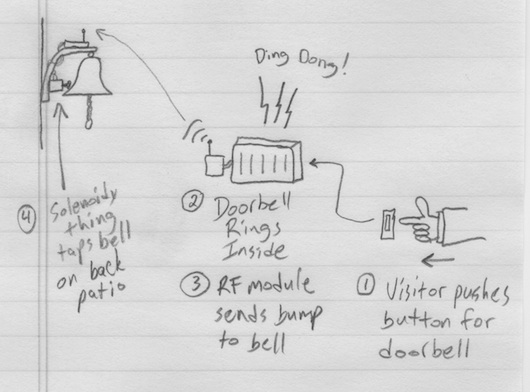 Ding Dong!
① Visitor pushes
button for
doorbell
② Doorbell
Rings
Inside
③ RF module
sends bump
to bell
④ Solenoidy
thing
taps bell
on back
patio